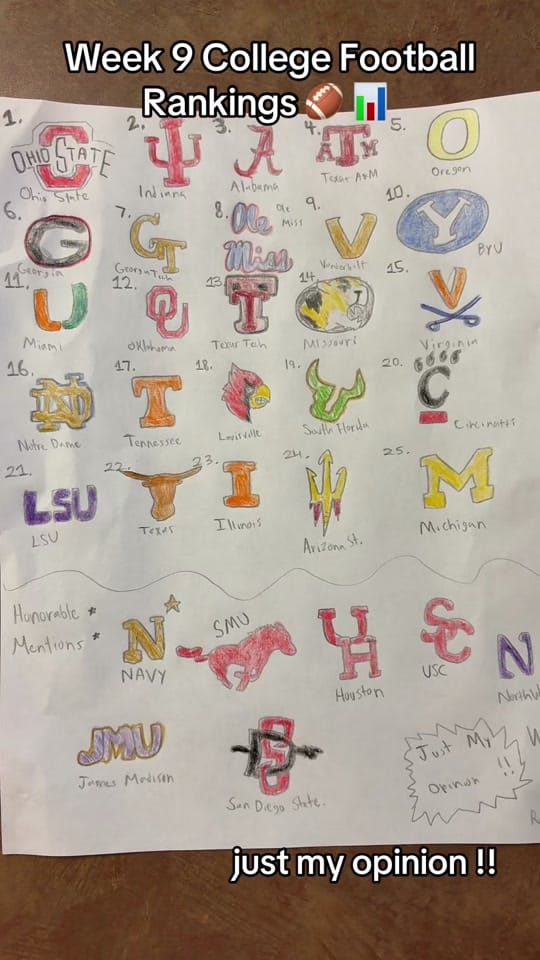 Week 9 College Football
Rankings🏈📊
1. 2. 3. 4. 5.
OHIO STATE A T M O
Ohio State Indiana Alabama Texas A&M Oregon
6. 7. 8. 9. 10.
G GT Ole Miss V Y
Georgia Georgia Tech Ole Miss Vanderbilt BYU
11. 12. 13. 14. 15.
U OU T V
Miami Oklahoma Texas Tech Missouri Virginia
16. 17. 18. 19. 20.
ND T U C
Notre Dame Tennessee Louisville South Florida Cincinatti
21. 22. 23. 24. 25.
LSU I M
LSU Texas Illinois Arizona St. Michigan
Honorable * N SMU UH SC N
Mentions * NAVY Houston USC
JMU SD
James Madison San Diego State.
Just My
Opinion !!
just my opinion !!